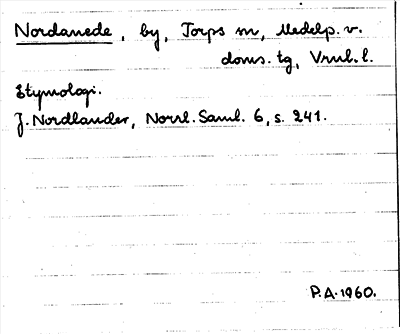 Nordanede, by, Torps sn, Medelp. v.
doms. tg, Vrnl. l.
Etymologi.
J. Nordlander, Norrl. Saml. 6, s. 241.
P.A. 1960.